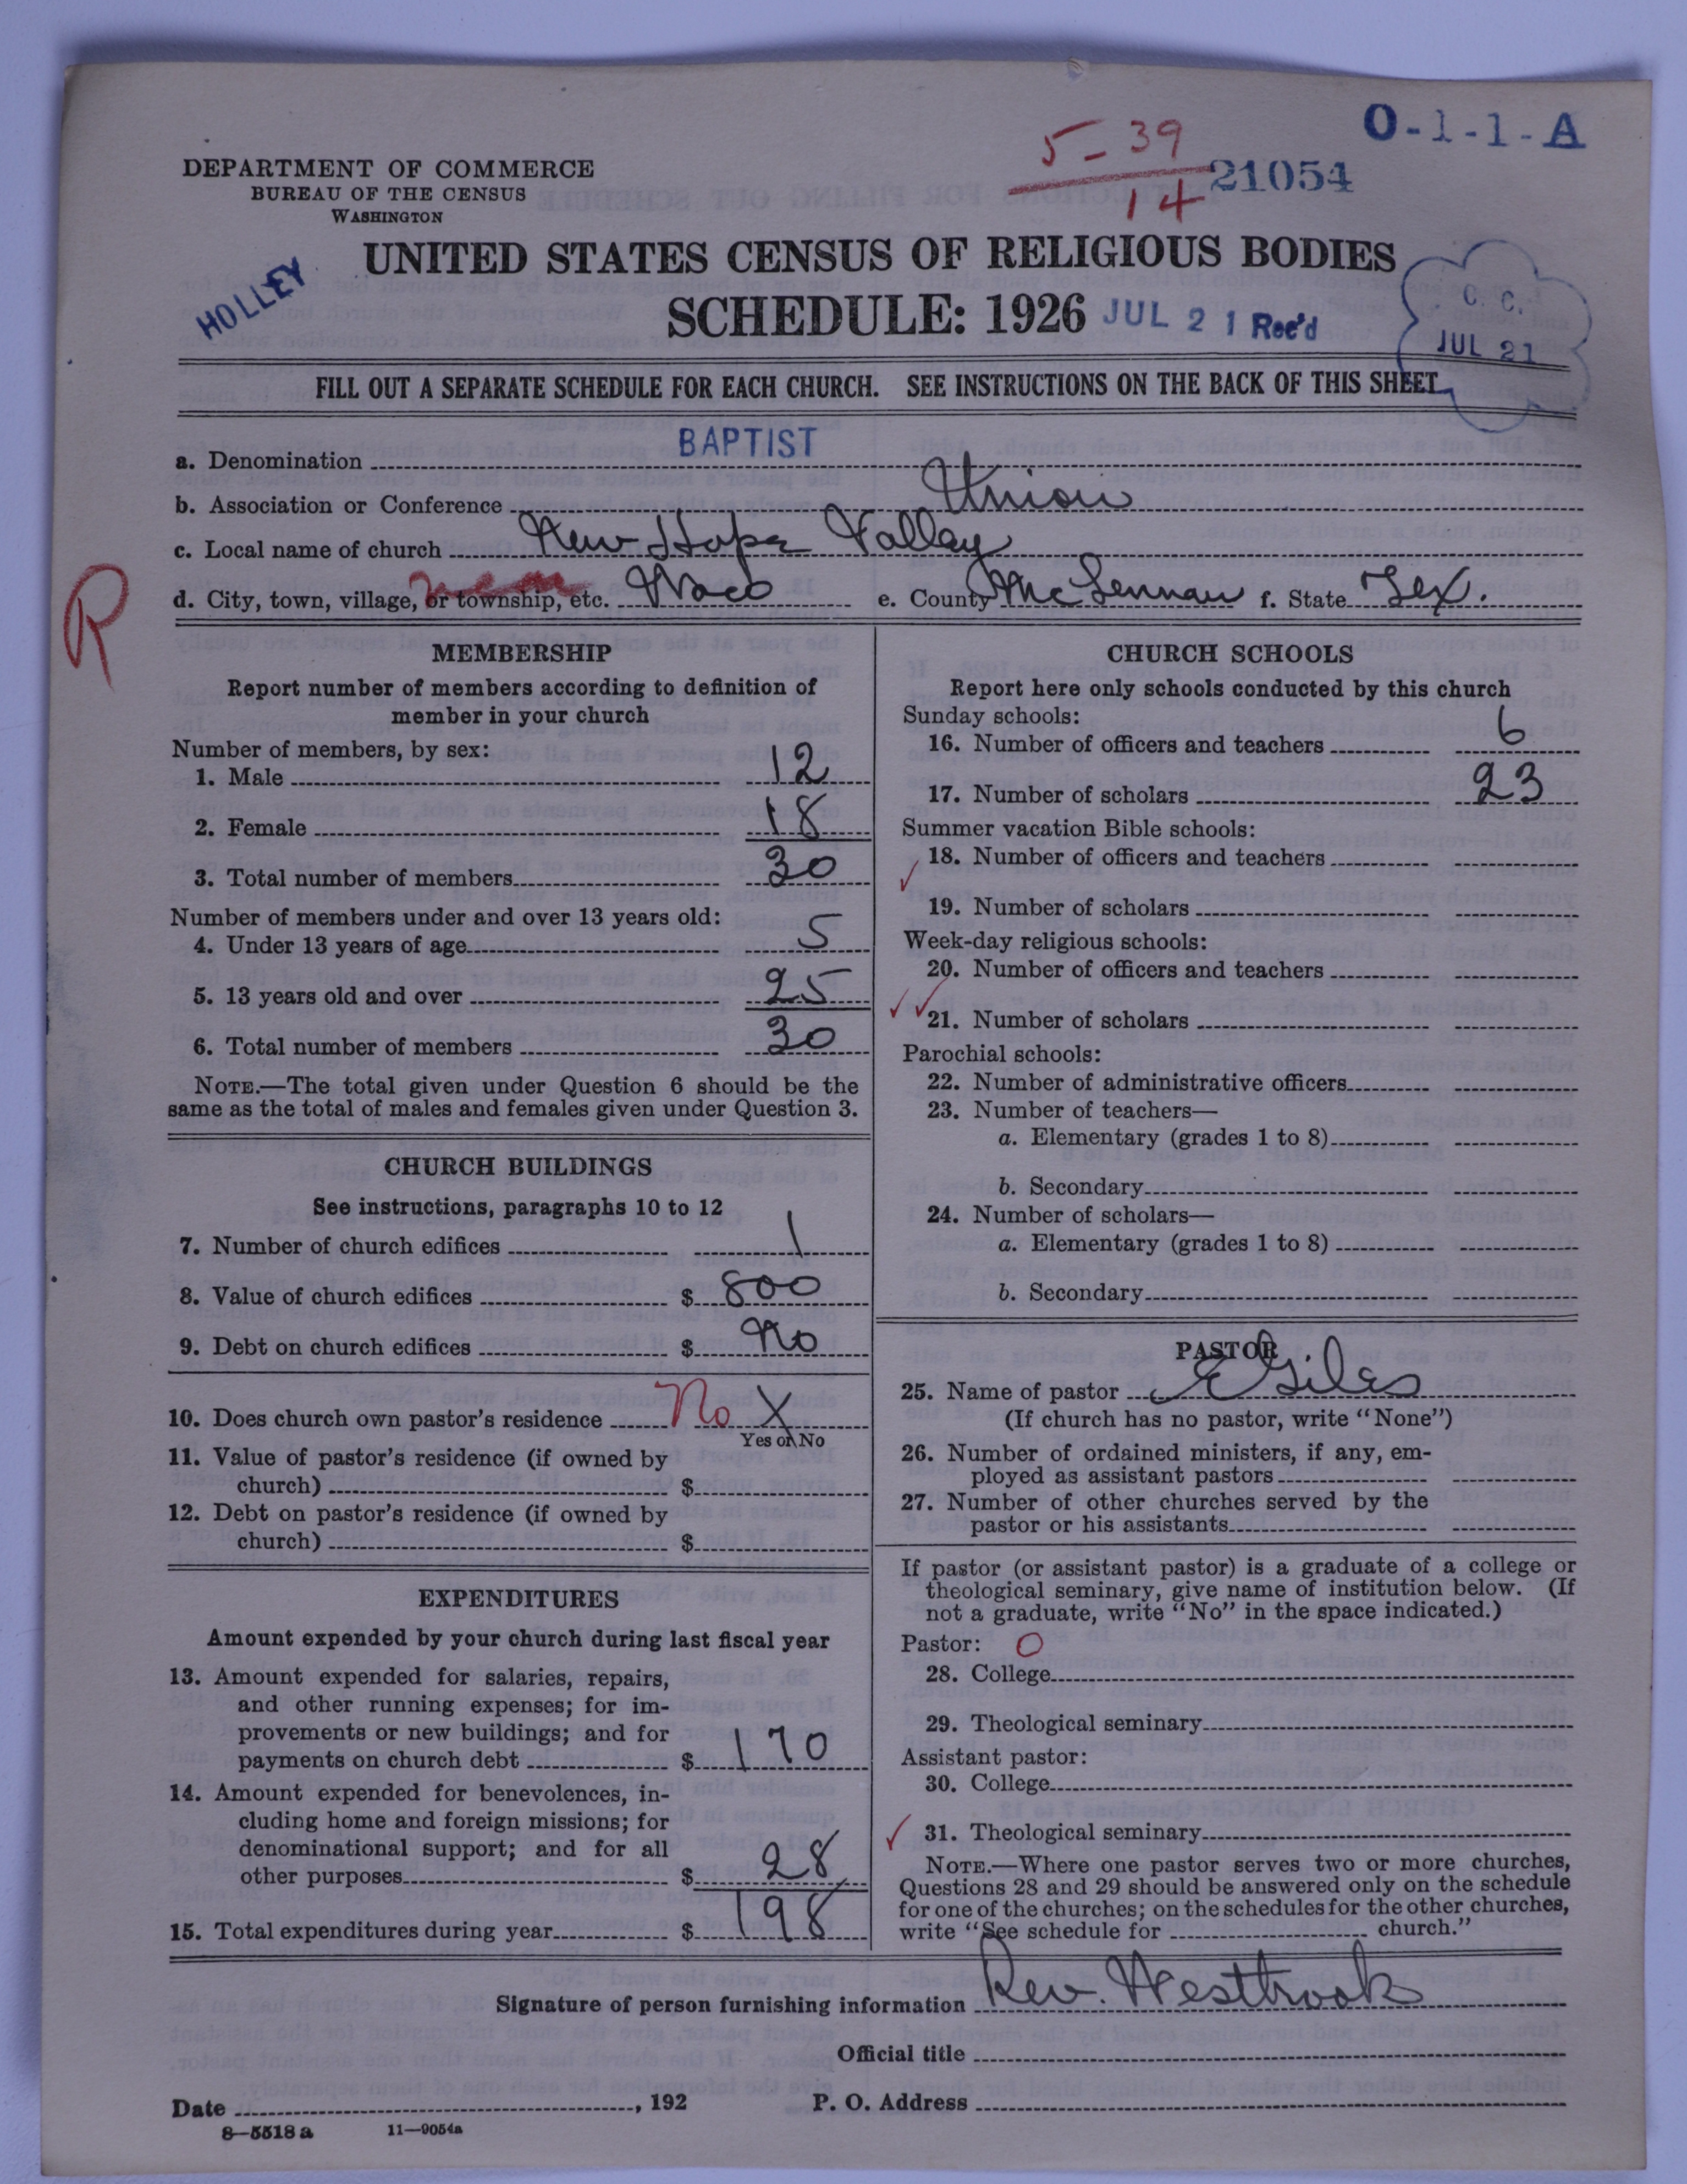 O-1-1-A
5-39
14
21054
DEPARTMENT OF COMMERCE
BUREAU OF THE CENSUS
WASHINGTON
UNITED STATES CENSUS OF RELIGIOUS BODIES
HOLLEY
SCHEDULE: 1926 JUL 21 Rec'd
C. C.
JUL 21
FILL OUT A SEPARATE SCHEDULE FOR EACH CHURCH. SEE INSTRUCTIONS ON THE BACK OF THIS SHEET
a. Denomination BAPTIST
b. Association or Conference Union
c. Local name of church New Hope Valley
d. City, town, village, or township, etc. near Waco e. County McLennan f. State Tex.
R
MEMBERSHIP
Report number of members according to definition of
member in your church
Number of members, by sex:
1. Male 12
2. Female 18
3. Total number of members 30
Number of members under and over 13 years old:
4. Under 13 years of age 5
5. 13 years old and over 25
6. Total number of members 30
NOTE.—The total given under Question 6 should be the
same as the total of males and females given under Question 3.
CHURCH BUILDINGS
See instructions, paragraphs 10 to 12
7. Number of church edifices 1
8. Value of church edifices $ 800
9. Debt on church edifices $ No
10. Does church own pastor's residence No X
Yes or No
11. Value of pastor's residence (if owned by
church) $
12. Debt on pastor's residence (if owned by
church) $
EXPENDITURES
Amount expended by your church during last fiscal year
13. Amount expended for salaries, repairs,
and other running expenses; for im-
provements or new buildings; and for
payments on church debt $ 170
14. Amount expended for benevolences, in-
cluding home and foreign missions; for
denominational support; and for all
other purposes $ 28
15. Total expenditures during year $ 198
CHURCH SCHOOLS
Report here only schools conducted by this church
Sunday schools:
16. Number of officers and teachers 6
17. Number of scholars 23
Summer vacation Bible schools:
18. Number of officers and teachers
19. Number of scholars
Week-day religious schools:
20. Number of officers and teachers
21. Number of scholars
Parochial schools:
22. Number of administrative officers
23. Number of teachers—
a. Elementary (grades 1 to 8)
b. Secondary
24. Number of scholars—
a. Elementary (grades 1 to 8)
b. Secondary
PASTOR
25. Name of pastor E Giles
(If church has no pastor, write "None")
26. Number of ordained ministers, if any, em-
ployed as assistant pastors
27. Number of other churches served by the
pastor or his assistants
If pastor (or assistant pastor) is a graduate of a college or
theological seminary, give name of institution below. (If
not a graduate, write "No" in the space indicated.)
Pastor: O
28. College
29. Theological seminary
Assistant pastor:
30. College
31. Theological seminary
NOTE.—Where one pastor serves two or more churches,
Questions 28 and 29 should be answered only on the schedule
for one of the churches; on the schedules for the other churches,
write "See schedule for church."
Signature of person furnishing information Rev. Westbrook
Official title
Date , 192 P. O. Address
8—5518 a 11—9054a